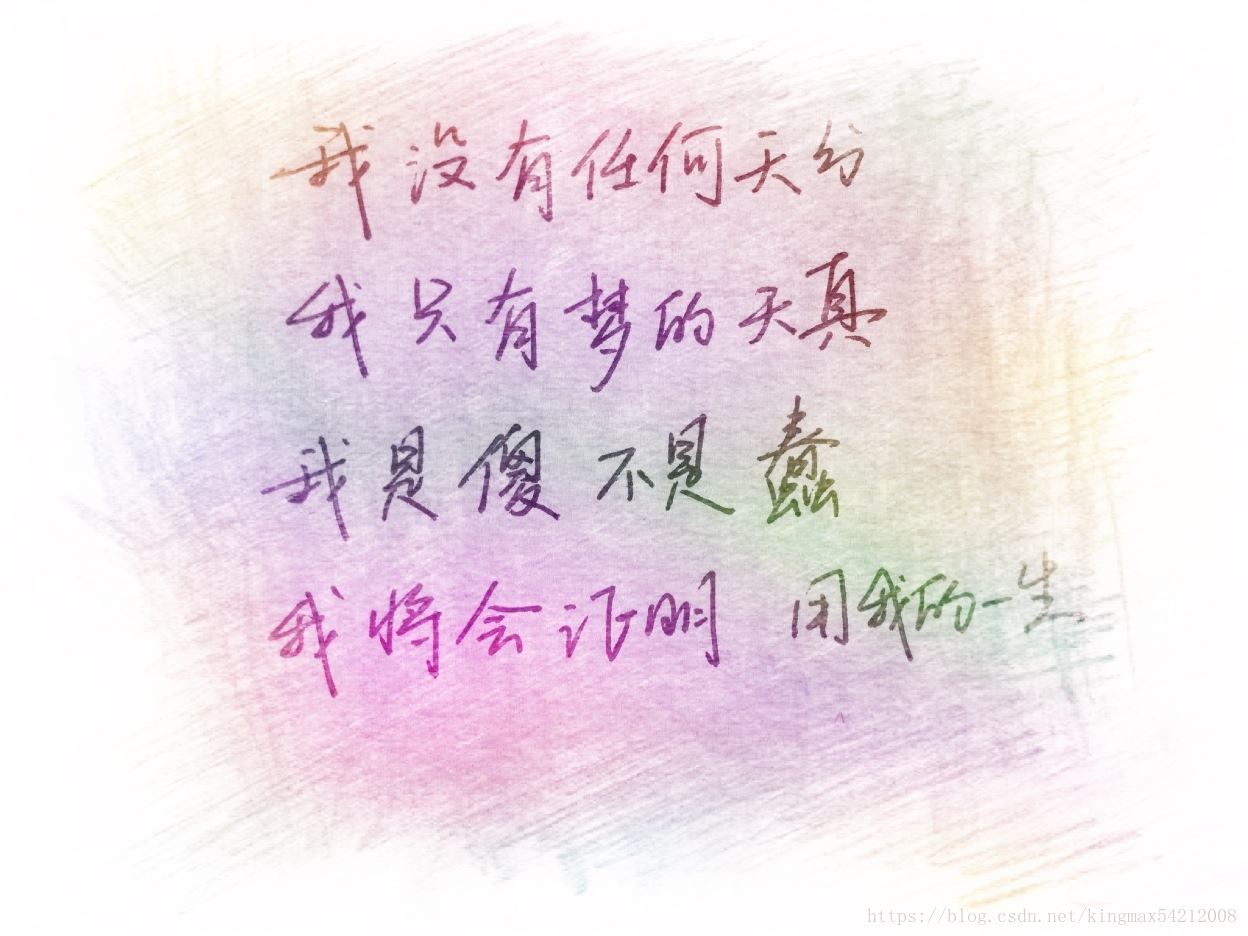 我没有任何天分
我只有梦的天真
我是傻 不是蠢
我将会证明 用我的一生
https://blog.csdn.net/kingmax54212008